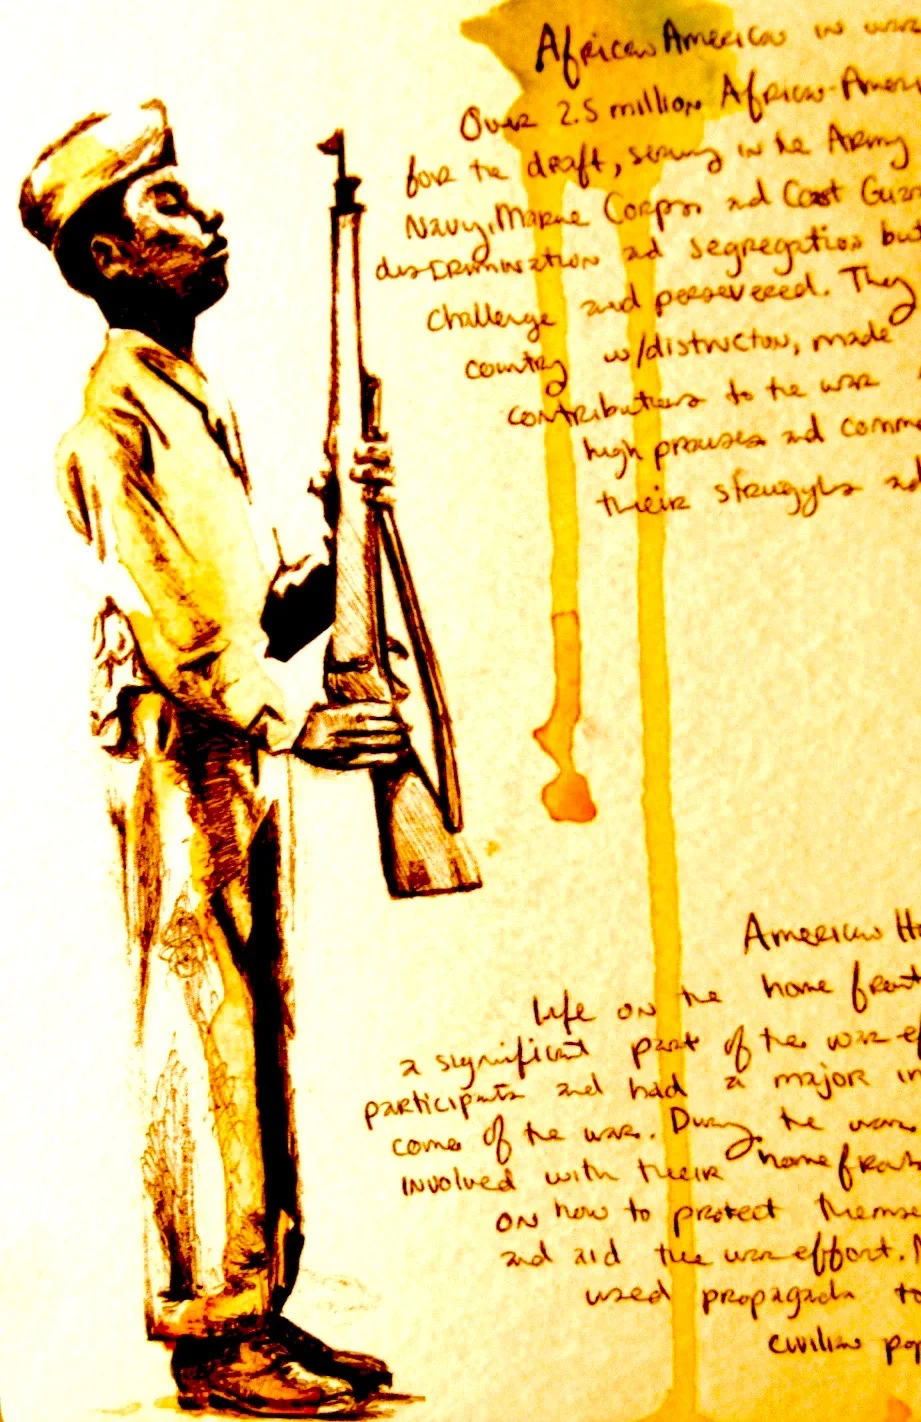 African American in war
Over 2.5 million African-Ameri
for the draft, serving in the Army
Navy, Marine Corps, and Coast Guar
discrimination and segregation but
challenge and persevered. They
country w/distincton, made
contributions to the war
high praises and comme
their struggles and
American Ho
life on the home front
a significant part of the war ef
participants and had a major in
come of the war. During the war
involved with their homefront
on how to protect themse
and aid the war effort.
used propaganda to
civilian pop